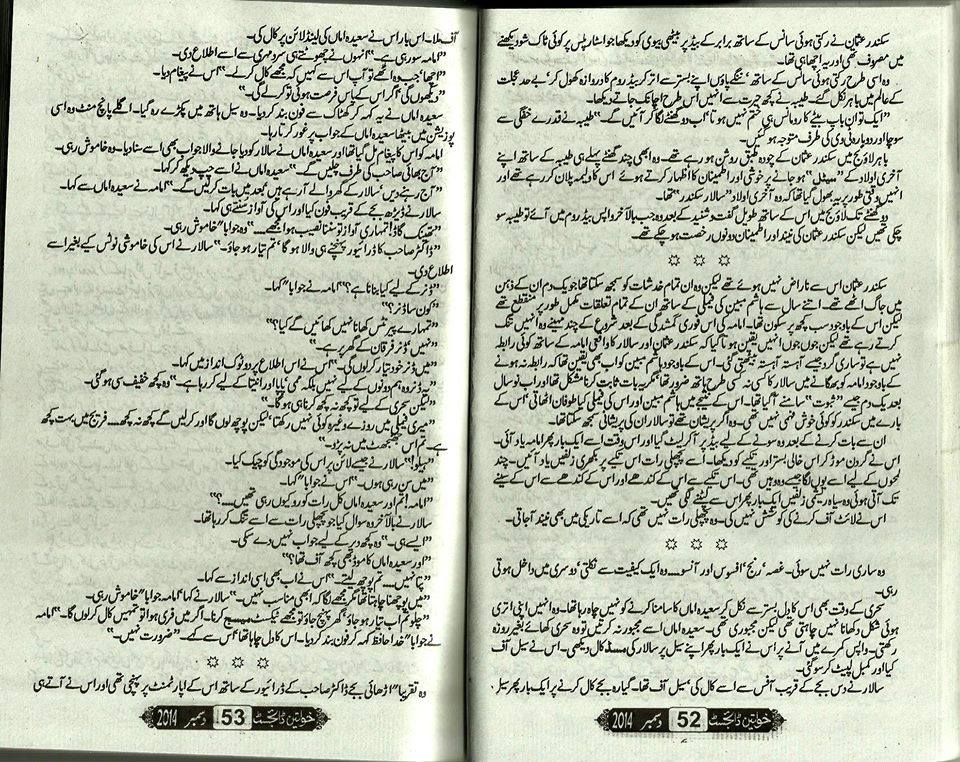 سکندر عثمان نے رکتی ہوئی سانس کے ساتھ برابر کے بیڈ پر بیٹھی بیوی کو دیکھا جو اسٹار پلس پر کوئی ٹاک شو دیکھنے
میں مصروف تھی اور یہ اچھا ہی تھا۔
وہ اسی طرح رکتی ہوئی سانس کے ساتھ ننگے پاؤں اپنے بستر سے اتر کر بیڈ روم کا دروازہ کھول کر بے حد عجلت
کے عالم میں باہر نکل گئے۔ طیبہ نے کچھ حیرت سے انہیں اس طرح اچانک جاتے دیکھا۔
"ایک تو ان باپ بیٹے کا رومانس ہی ختم نہیں ہوتا' اب دو گھنٹے لگا کر آئیں گے۔" طیبہ نے قدرے خفگی سے
سوچا اور دوبارہ ٹی وی کی طرف متوجہ ہو گئیں۔
باہر لاؤنج میں سکندر عثمان کے چودہ طبق روشن ہو رہے تھے۔ وہ ابھی چند گھنٹے پہلے ہی طیبہ کے ساتھ اپنے
آخری اولاد کے "سیٹل" ہو جانے پر خوشی اور اطمینان کا اظہار کرتے ہوئے اس کا ولیمہ پلان کر رہے تھے اور
انہیں وقتی طور پر یہ بھول گیا تھا کہ وہ آخری اولاد "سالار سکندر" تھا۔
دو گھنٹے تک لاؤنج میں اس کے ساتھ طویل گفت و شنید کے بعد وہ جب بالآخر واپس بیڈ روم میں آئے تو طیبہ سو
چکی تھیں لیکن سکندر عثمان کی نیند اور اطمینان دونوں رخصت ہو چکے تھے۔
سکندر عثمان اس سے ناراض نہیں ہوئے تھے لیکن وہ ان تمام خدشات کو سمجھ سکتا تھا جو یک دم ان کے ذہن
میں جاگ اٹھے تھے۔ اتنے سال سے ہاشم مبین کی فیملی کے ساتھ ان کے تمام تعلقات مکمل طور پر منقطع تھے
لیکن اس کے باوجود سب کچھ پرسکون تھا۔ امامہ کی اس فوری گمشدگی کے بعد شروع کے چند مہینے وہ انہیں تنگ
کرتے رہے تھے لیکن جوں جوں انہیں یقین ہوتا گیا کہ سکندر عثمان اور سالار کا واقعی امامہ کے ساتھ کوئی رابطہ
نہیں ہے تو ساری گرد جیسے آہستہ آہستہ بیٹھتی گئی۔ اس کے باوجود ہاشم مبین کو اب بھی یقین تھا کہ رابطہ نہ ہونے
کے باوجود امامہ کو بھگانے میں سالار کا کسی نہ کسی طرح ہاتھ ضرور تھا' مگر یہ بات ثابت کرنا مشکل تھا اور اب نو سال
بعد یک دم جیسے "ثبوت" سامنے آ گیا تھا۔ اس کے نتیجے میں ہاشم مبین اور اس کی فیملی کیا طوفان اٹھاتی' اس کے
بارے میں سکندر کو کوئی خوش فہمی نہیں تھی۔ وہ اگر پریشان تھے تو سالار ان کی پریشانی سمجھ سکتا تھا۔
ان سے بات کرنے کے بعد وہ سونے کے لیے بیڈ پر آ کر لیٹ گیا اور اس وقت اسے ایک بار پھر امامہ یاد آئی۔
اس نے گردن موڑ کر اس خالی بستر اور تکیے کو دیکھا۔ اسے پچھلی رات اس تکیے پر بکھری زلفیں یاد آئیں۔ چند
لمحوں کے لیے اسے یوں لگا جیسے وہ وہیں تھی۔ اس تکیے سے اس کے کندھے اور اس کے کندھے سے اس کے سینے
تک آتی ہوئی وہ سیاہ ریشمی زلفیں ایک بار پھر اس سے لپٹنے لگی تھیں۔
اس نے لائٹ آف کرنے کی کوشش نہیں کی۔ وہ پچھلی رات نہیں تھی کہ اسے تاریکی میں بھی نیند آ جاتی۔
وہ ساری رات نہیں سوئی۔ غصہ' رنج' افسوس اور آنسو۔۔۔ وہ ایک کیفیت سے نکلتی' دوسری میں داخل ہوتی
رہی۔
سحری کے وقت بھی اس کا دل بستر سے نکل کر سعیدہ اماں کا سامنا کرنے کو نہیں چاہ رہا تھا۔ وہ انہیں اپنی اتری
ہوئی شکل دکھانا نہیں چاہتی تھی لیکن مجبوری تھی۔ سعیدہ اماں اسے مجبور نہ کرتیں تو وہ سحری کھائے بغیر روزہ
رکھتی۔ واپس کمرے میں آنے پر اس نے ایک بار پھر اپنے سیل پر سالار کی مسڈ کال دیکھی۔ اس نے سیل آف
کیا اور کمبل لپیٹ کر سو گئی۔
سالار نے دس بجے کے قریب آفس سے اسے کال کی' سیل آف تھا۔ گیارہ بجے کال کرنے پر ایک بار پھر سیل
خواتین ڈائجسٹ 52 دسمبر 2014
آف ملا۔ اس بار اس نے سعیدہ اماں کی لینڈ لائن پر کال کی۔
"امامہ سو رہی ہے۔" انہوں نے چھوٹتے ہی سرد مہری سے اسے اطلاع دی۔
"اچھا' جب وہ اٹھے تو آپ اس سے کہیں کہ مجھے کال کر لے۔" اس نے پیغام دیا۔
"دیکھوں گی' اگر اس کے پاس فرصت ہوئی تو کر لے گی۔"
سعیدہ اماں نے یہ کہہ کر کھٹاک سے فون بند کر دیا۔ وہ سیل ہاتھ میں پکڑے رہ گیا۔ اگلے پانچ منٹ وہ اسی
پوزیشن میں بیٹھا سعیدہ اماں کے جواب پر غور کرتا رہا۔
امامہ کو اس کا پیغام مل گیا تھا اور سعیدہ اماں نے سالار کو دیا جانے والا جواب بھی اسے سنا دیا۔ وہ خاموش رہی۔
"آج بھائی صاحب کی طرف چلیں گے۔" سعیدہ اماں نے اسے چپ دیکھ کر کہا۔
"آج رہنے دیں' سالار کے گھر والے آ رہے ہیں' بعد میں بات کر لیں گے۔" امامہ نے سعیدہ اماں سے کہا۔
سالار نے ڈیڑھ بجے کے قریب فون کیا اور اس کی آواز سنتے ہی کہا۔
"تھینک گاڈ! تمہاری آواز تو سننا نصیب ہوا مجھے۔" وہ جوابا" خاموش رہی۔
"ڈاکٹر صاحب کا ڈرائیور پہنچنے ہی والا ہو گا' تم تیار ہو جاؤ۔" سالار نے اس کی خاموشی نوٹس کیے بغیر اسے
اطلاع دی۔
"ڈنر کے لیے کیا بنانا ہے؟" امامہ نے جوابا" کہا۔
"کون سا ڈنر؟"
"تمہارے پیرنٹس کھانا نہیں کھائیں گے کیا؟"
"نہیں' ڈنر فرقان کے گھر پر ہے۔"
"میں ڈنر خود تیار کر لوں گی۔" اس نے اس اطلاع پر دو ٹوک انداز میں کہا۔
"یہ ڈنر وہ ہم دونوں کے لیے نہیں بلکہ ممی' پاپا اور انیتا کے لیے کر رہا ہے۔" وہ کچھ خفیف سی ہو گئی۔
"لیکن سحری کے لیے تو کچھ نہ کچھ کرنا ہی ہو گا۔"
"میری فیملی میں روزے وغیرہ کوئی نہیں رکھتا' لیکن پوچھ لوں گا اور کر لیں گے کچھ نہ کچھ۔۔۔ فریج میں بہت کچھ
ہے۔ تم اس جھنجھٹ میں نہ پڑو۔"
"ہیلو!" سالار نے جیسے لائن پر اس کی موجودگی کو چیک کیا۔
"میں سن رہی ہوں۔" اس نے جوابا" کہا۔
"امامہ! تم اور سعیدہ اماں کل رات کو رو کیوں رہی تھیں۔۔۔؟"
سالار نے بالآخر وہ سوال کیا جو پچھلی رات سے اسے تنگ کر رہا تھا۔
"ایسے ہی۔" وہ کچھ دیر کے لیے جواب نہیں دے سکی۔
"اور سعیدہ اماں کا موڈ بھی کچھ آف تھا؟"
نہیں۔۔۔ تم پوچھ لیتے۔" اس نے اب بھی اسی انداز سے کہا۔
"میں پوچھنا چاہتا تھا مگر مجھے لگا کہ ابھی مناسب نہیں۔" سالار نے کہا' امامہ جوابا" خاموش رہی۔
"چلو تم اب تیار ہو جاؤ' گھر پہنچ جاؤ تو مجھے ٹیکسٹ میسج کرنا۔ اگر میں فری ہوا تو تمہیں کال کر لوں گا۔" امامہ
نے جوابا" خدا حافظ کہہ کر فون بند کر دیا۔ اس کا دل چاہا تھا' اس سے کہے۔ "ضرورت نہیں۔"
وہ تقریبا" اڑھائی بجے ڈاکٹر صاحب کے ڈرائیور کے ساتھ اس کے اپارٹمنٹ پر پہنچی تھی اور اس نے آتے ہی
خواتین ڈائجسٹ 53 دسمبر 2014